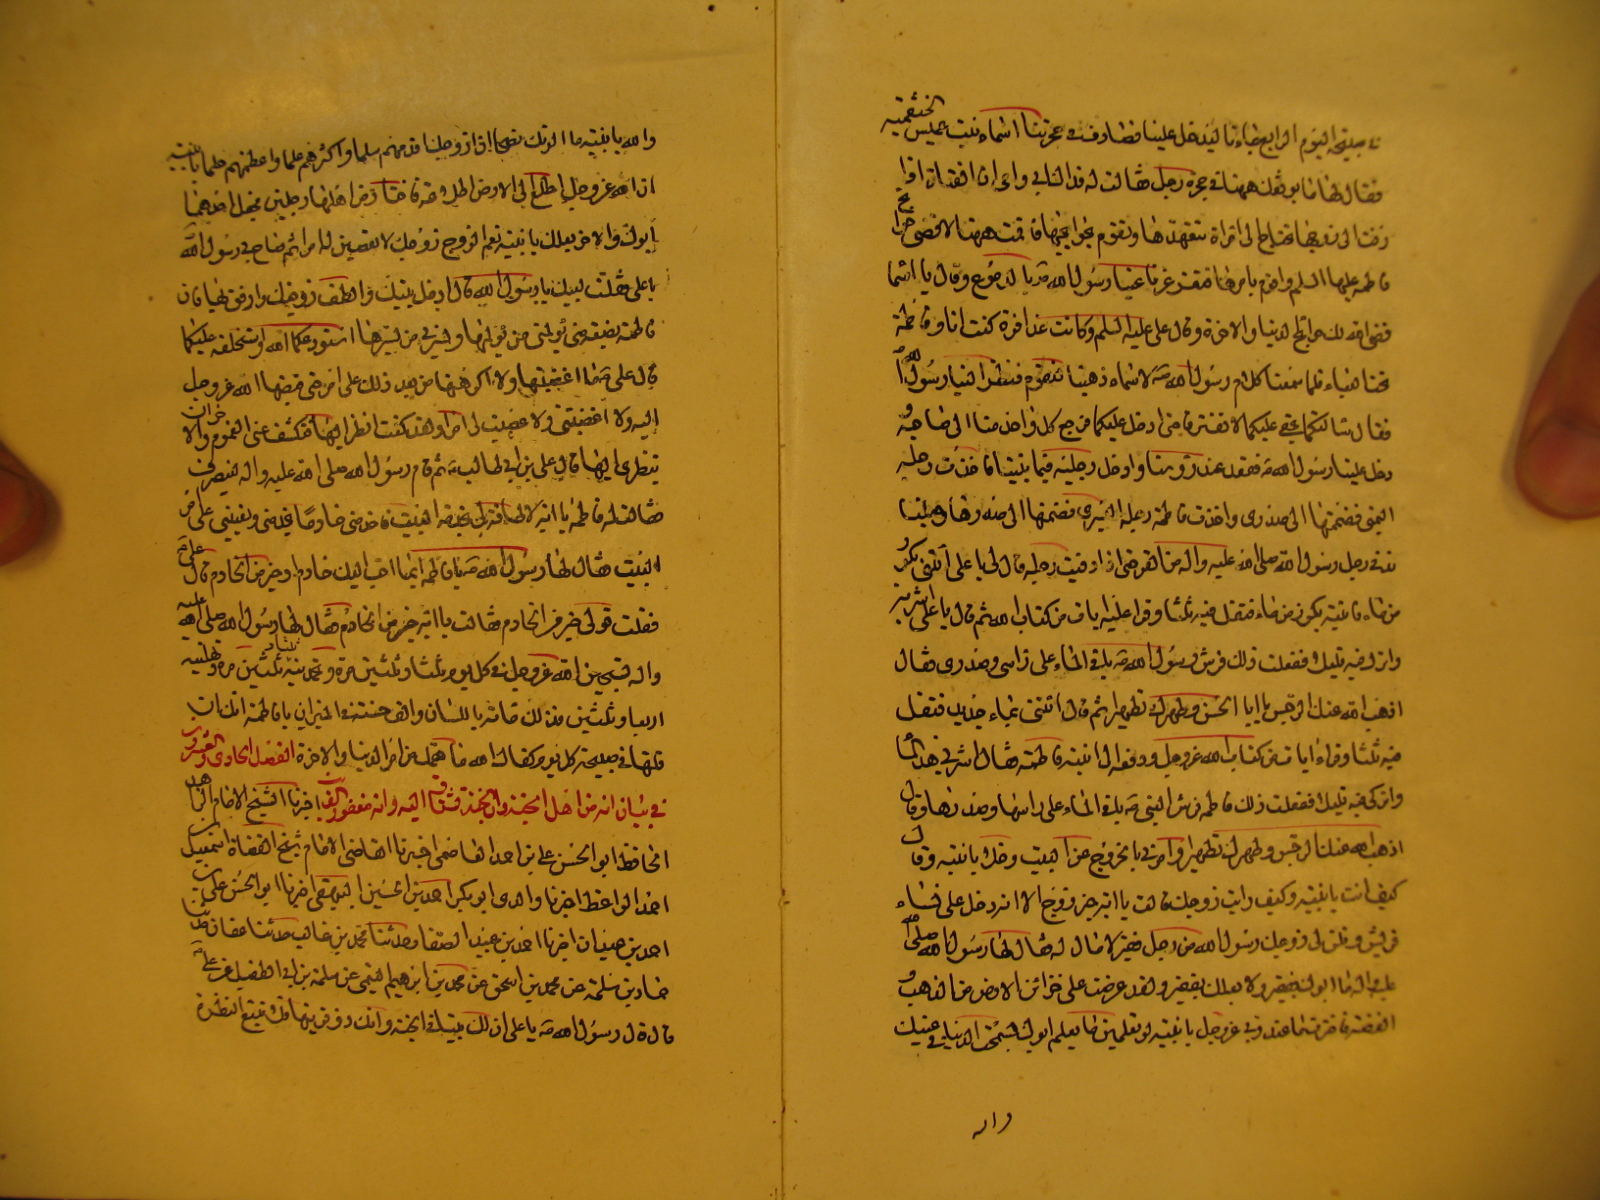 في صبيحة اليوم الرابع جاءنا ليدخل علينا فصادف في حجرتنا اسماء بنت عميس الخثعمية
فقال لها ما يوقفك ههنا وفي حجرة رجل فقالت له فداك ابي وامي ان الفتاة اذا
زفت الى زوجها تحتاج الى امراة تتعهدها وتقوم بحوائجها فاقمت ههنا لاقضي حوائج
فاطمة عليها السلم واقوم بامرها فتغرغرت عينا رسول الله صه بالدموع وقال يا اسما
قضى الله لك حوائج الدنيا والاخرة وقال علي عليه السلم وكانت غداة قرة كنت انا وفاطمة
تحت العباء فلما سمعنا كلام رسول الله صه لاسماء ذهبنا لنقوم فنظر الينا رسول الله
فقال سالتكما بحقي عليكما لا تفترقا حتى ادخل عليكما فرجع كل واحد منا الى صاحبه و
دخل علينا رسول الله صه فقعد عند رؤوسنا وادخل رجليه فيما بيننا فاخذت رجله
اليمنى فضممتها الى صدري واخذت فاطمة رجله اليسرى فضمتها الى صدرها وجعلنا
ندفي رجل رسول الله صلى الله عليه واله من القر حتى اذا دفيت رجليه قال لي يا علي ائتني بكوز
من ماء فاتيته بكوز من ماء فتفل فيه ثلثا وقرا عليه ايات من كتاب الله ثم قال يا علي اشربه
واترك فيه قليلا ففعلت ذلك فرش رسول الله صه باقي الماء على راسي وصدري فقال
اذهب الله عنك الرجس يا ابا الحسن وطهرك تطهيرا ثم قال ائتني بماء جديد فتفل
فيه ثلثا وقراء ايات من كتاب الله عز وجل ودفعه الى ابنته فاطمة فقال اشربي هذا الماء
واتركي فيه قليلا ففعلت ذلك فاطمة فرش النبي صه باقي الماء على راسها وصدرها وقال
اذهب الله عنك الرجس وطهرك تطهيرا وامرني بالخروج من البيت وخلا بابنته وقال
كيف انت يا بنية وكيف رايت زوجك قالت يا ابه خير زوج الا انه دخل علي نساء
قريش وقلن لي زوجك رسول الله من رجل فقير لا مال له فقال لها رسول الله صلى الله
عليه واله ما ابوك بفقير ولا بعلك بفقير ولقد عرضت علي خزائن الارض من الذهب و
الفضة فاخترت ما عند ربي عز وجل يا بنية لو تعلمين ما يعلم ابوك لسمجت الدنيا في عينيك
واله
والله يا بنية ما الوتك نصحا اني زوجتك اقدمهم سلما واكثرهم علما واعظمهم حلما يا بنية
ان الله عز وجل اطلع الى الارض اطلاعة فاختار من اهلها رجلين فجعل احدهما
ابوك والاخر بعلك يا بنية نعم الزوج زوجك لا تعصين له امرا ثم صاح بي رسول الله
يا علي فقلت لبيك يا رسول الله قال ادخل بيتك والطف زوجتك وارفق بها فان
فاطمة بضعة مني يؤلمني من يؤلمها ويسرني من يسرها استودعكما الله واستخلفه عليكما
قال علي فما اغضبتها ولا اكرهتها من بعد ذلك على امر حتى قبضها الله عز وجل
اليه ولا اغضبتني ولا عصيت لي امرا ولقد كنت انظر اليها فتكشف عني الغموم والاحزان
بنظري اليها قال علي بن ابي طالب ثم قام رسول الله صلى الله عليه واله لينصرف
فقالت له فاطمة يا ابه لا طاقة لي بخدمة البيت فاخدمني خادما يخدمني ويعينني على امر
البيت فقال لها رسول الله صه يا فاطمة ايما احب اليك خادم او خير من الخادم قال علي
فقلت قولي خير من الخادم فقالت يا ابه خير من الخادم فقال لها رسول الله صلى الله عليه
واله تسبحين الله عز وجل في كل يوم ثلثا وثلثين مرة وتحمدينه ثلثا وثلثين مرة وتهللينه
اربعا وثلثين فذلك مائة باللسان والف حسنة في الميزان يا فاطمة انك ان
قلتها في صبيحة كل يوم كفاك الله ما اهمك من امر الدنيا والاخرة الفصل الحادي والعشرون
في بيان انه من اهل الجنة وان الجنة تشتاق اليه وانه مغفور له اخبرنا الشيخ الامام الزاهد
الحافظ ابو الحسن علي بن احمد العاصمي اخبرنا القاضي الامام شيخ القضاة اسمعيل بن
احمد الواعظ اخبرنا والدي ابو بكر احمد بن الحسين البيهقي اخبرنا ابو الحسن علي بن
احمد بن عبدان اخبرنا احمد بن عبيد الصفار حدثنا محمد بن غالب حدثنا عفان حدثنا
حماد بن سلمة عن محمد بن اسحق عن محمد بن ابرهيم التيمي عن سلمة بن ابي الطفيل عن علي
قال قال رسول الله صه يا علي ان لك بيتا في الجنة وانك ذو قرنيها فلا تتبع النظرة